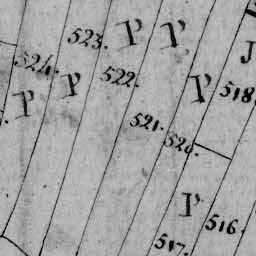 523. P P.
J
524. P 522. P 518.
P
521. 520.
P 516.
517.